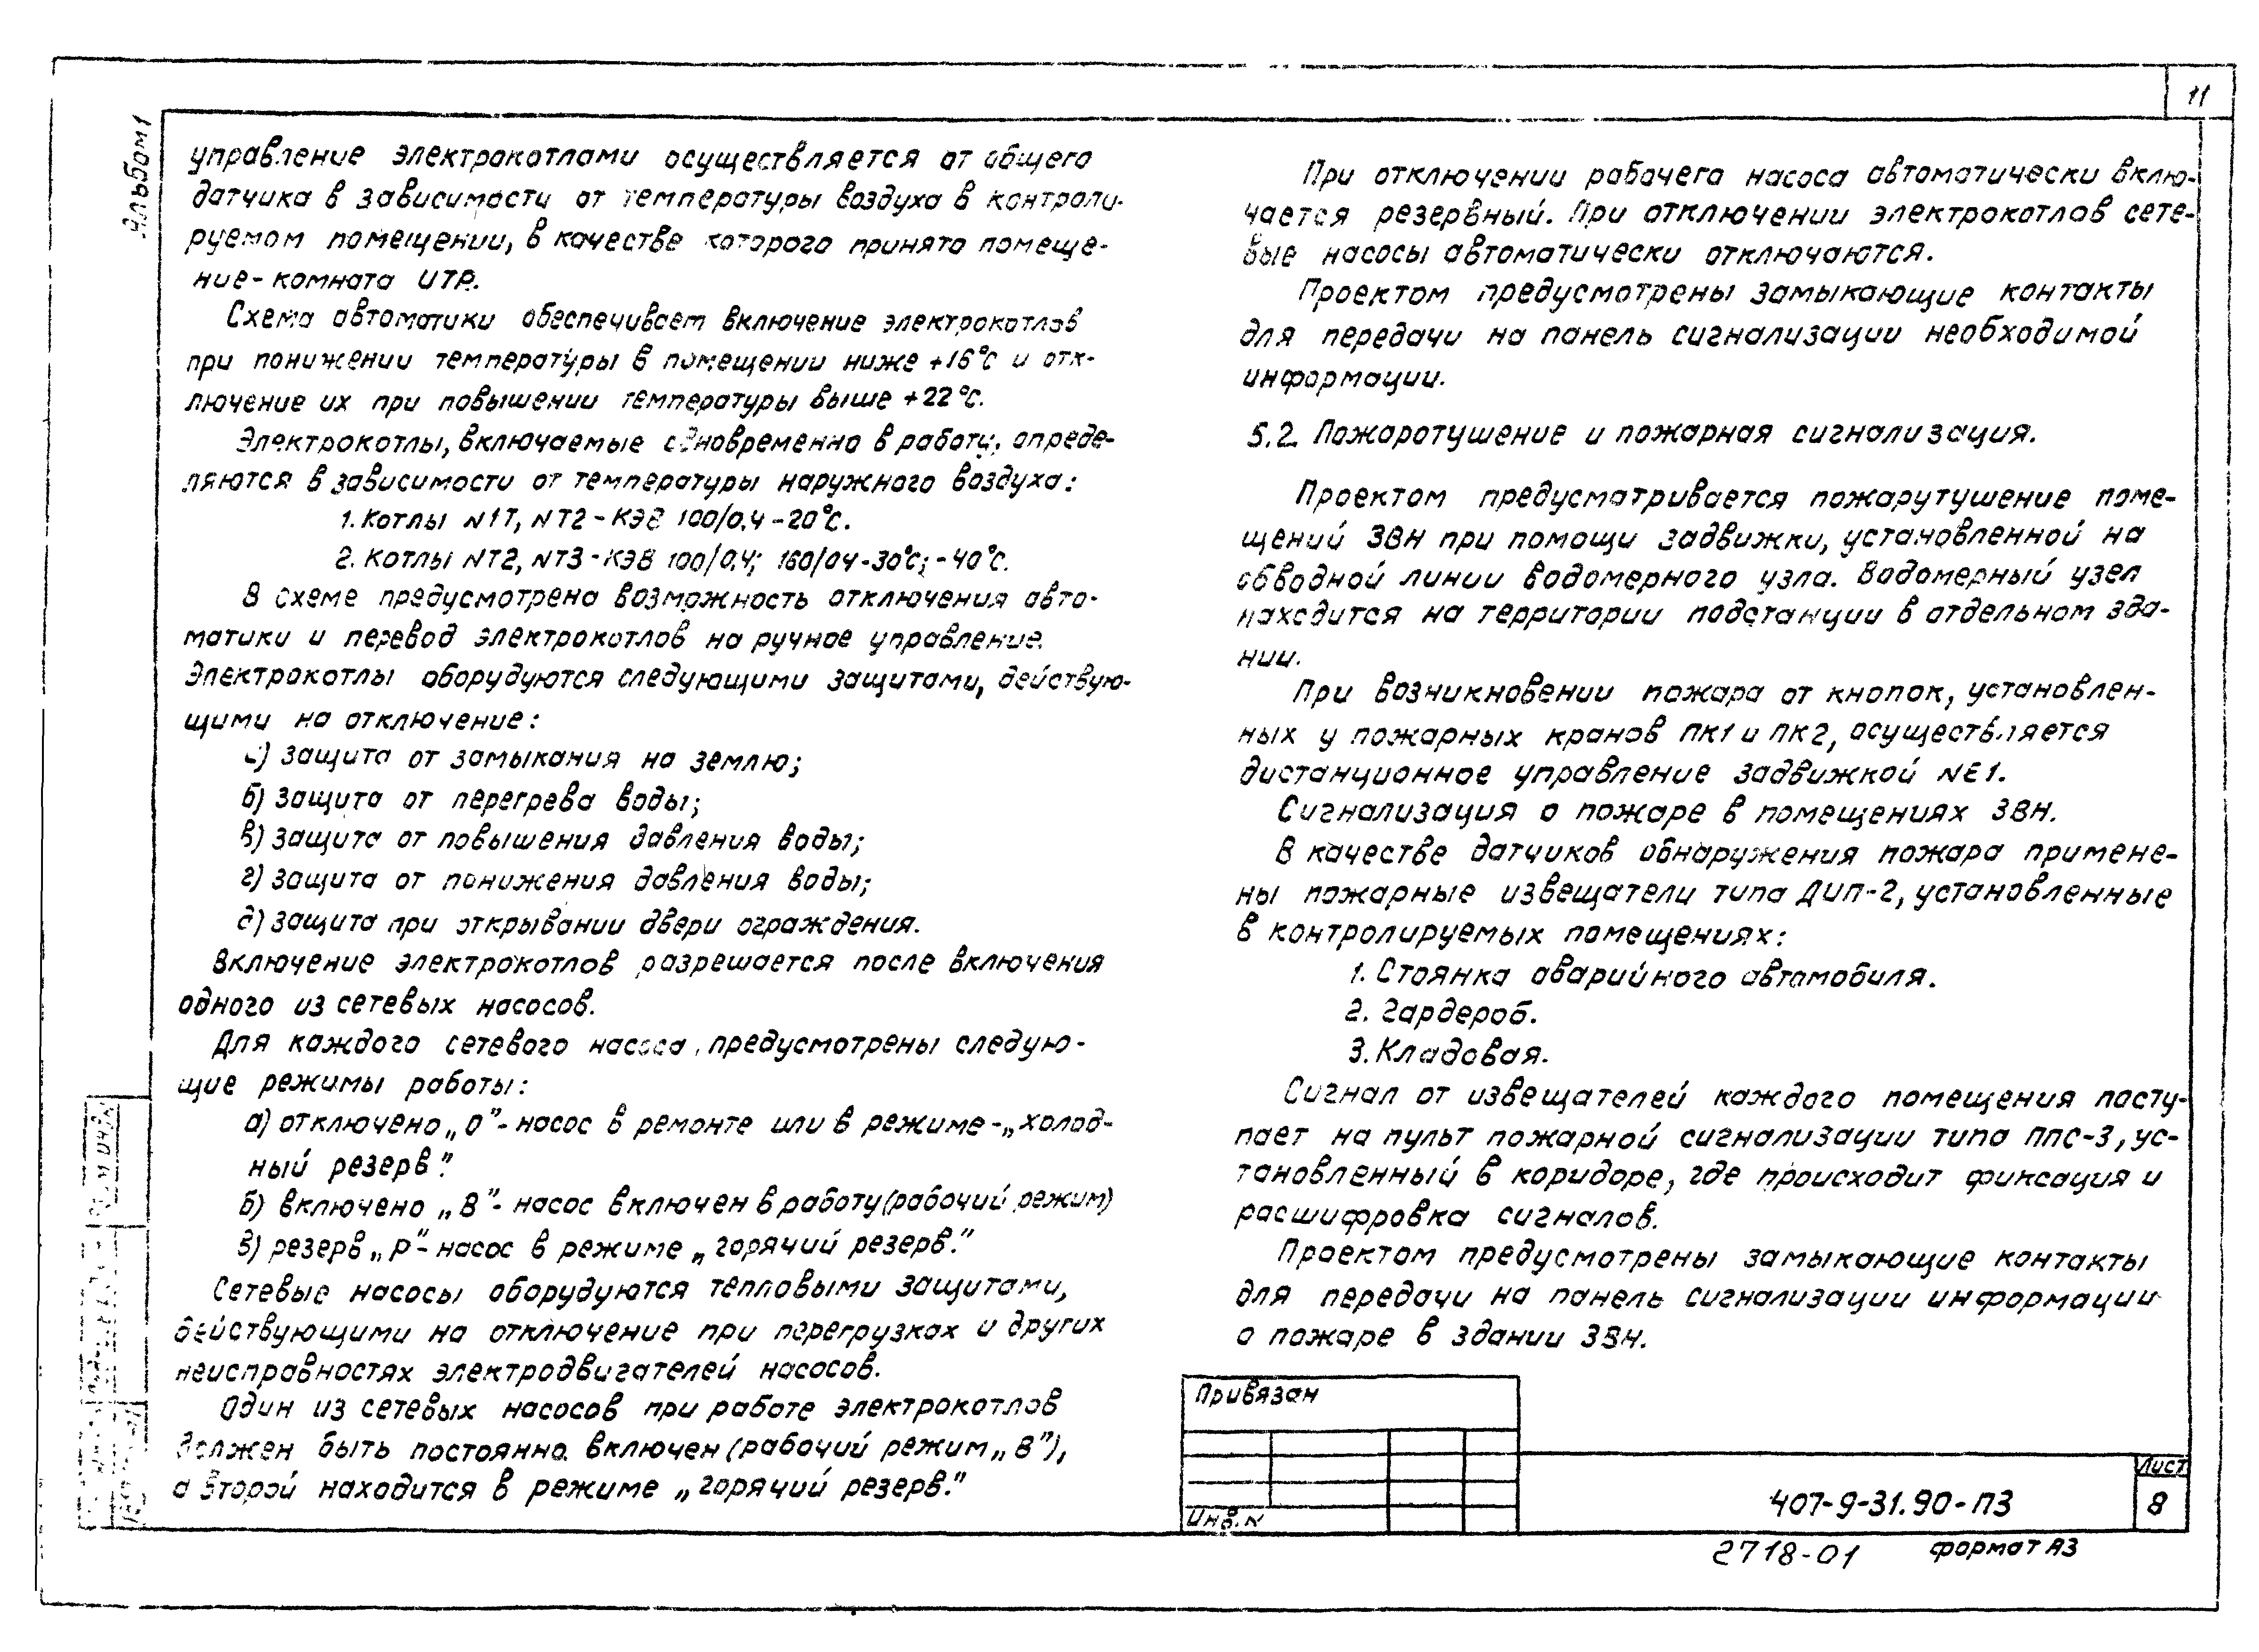 11
Альбом 1
управление электрокотлами осуществляется от общего
датчика в зависимости от температуры воздуха в контроли-
руемом помещении, в качестве которого принято помеще-
ние-комната ИТР.
Схема автоматики обеспечивает включение электрокотлов
при понижении температуры в помещении ниже +16°С и отк-
лючение их при повышении температуры выше +22°С.
Электрокотлы, включаемые одновременно в работу, опреде-
ляются в зависимости от температуры наружного воздуха:
1. Котлы N1Т, NТ2 - КЭВ 100/0,4 -20°С.
2. Котлы NТ2, NТ3 - КЭВ 100/0,4; 160/04 -30°С; -40°С.
В схеме предусмотрена возможность отключения авто-
матики и перевод электрокотлов на ручное управление.
Электрокотлы оборудуются следующими защитами, действую-
щими на отключение:
а) защита от замыкания на землю;
б) защита от перегрева воды;
в) защита от повышения давления воды;
г) защита от понижения давления воды;
д) защита при открывании двери ограждения.
Включение электрокотлов разрешается после включения
одного из сетевых насосов.
Для каждого сетевого насоса, предусмотрены следую-
щие режимы работы:
а) отключено „0”- насос в ремонте или в режиме -„холод-
ный резерв”.
б) включено „В”- насос включен в работу (рабочий режим)
в) резерв „Р”- насос в режиме „горячий резерв.”
Сетевые насосы оборудуются тепловыми защитами,
действующими на отключение при перегрузках и других
неисправностях электродвигателей насосов.
Один из сетевых насосов при работе электрокотлов
должен быть постоянно включен (рабочий режим „В”),
а второй находится в режиме „горячий резерв.”
При отключении рабочего насоса автоматически вклю-
чается резервный. При отключении электрокотлов сете-
вые насосы автоматически отключаются.
Проектом предусмотрены замыкающие контакты
для передачи на панель сигнализации необходимой
информации.
5.2. Пожаротушение и пожарная сигнализация.
Проектом предусматривается пожарутушение поме-
щений ЗВН при помощи задвижки, установленной на
обводной линии водомерного узла. Водомерный узел
находится на территории подстанции в отдельном зда-
нии.
При возникновении пожара от кнопок, установлен-
ных у пожарных кранов ПК1 и ПК2, осуществляется
дистанционное управление задвижкой NЕ1.
Сигнализация о пожаре в помещениях ЗВН.
В качестве датчиков обнаружения пожара примене-
ны пожарные извещатели типа ДИП-2, установленные
в контролируемых помещениях:
1. Стоянка аварийного автомобиля.
2. Гардероб.
3. Кладовая.
Сигнал от извещателей каждого помещения посту-
пает на пульт пожарной сигнализации типа ППС-3, ус-
тановленный в коридоре, где происходит фиксация и
расшифровка сигналов.
Проектом предусмотрены замыкающие контакты
для передачи на панель сигнализации информации
о пожаре в здании ЗВН.
Привязан
Инв. N
407-9-31.90-ПЗ
Лист
8
2718-01
формат А3